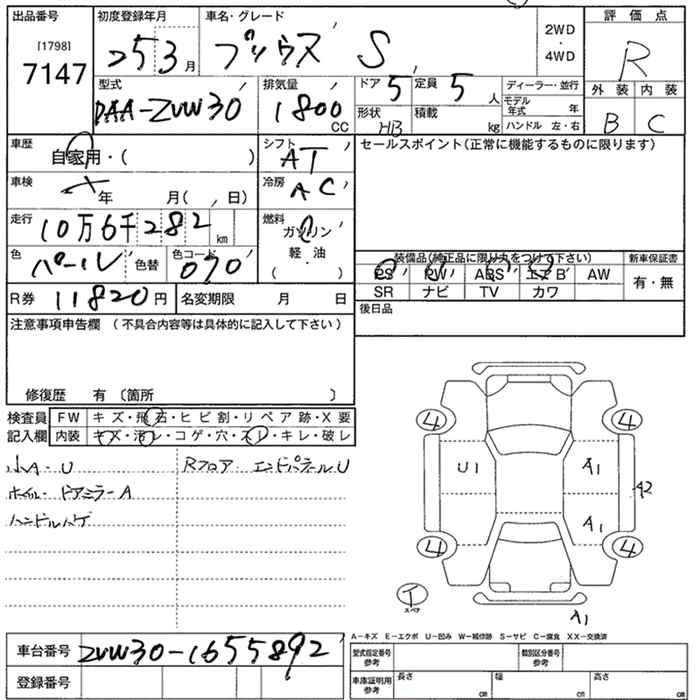 出品番号
[1798]
7147
初度登録年月
25 3 月
車名・グレード
プリウス S
2WD
・
4WD
評価点
R
外装 内装
B C
型式
DAA-ZVW30
排気量
1800 CC
ドア 5
定員 5 人
形状 HB
積載 kg
ディーラー・並行
モデル年式 年
ハンドル 左・右
車歴
自家用・( )
シフト
AT
セールスポイント(正常に機能するものに限ります)
車検
年 月( , 日)
冷房
AC
走行
10万6千282 km
燃料
ガソリン
軽・油
・
( )
色
パール
色替
色コード
070
装備品(純正品に限り丸をつけて下さい)
新車保証書
PS PW ABS エアB AW
有・無
SR ナビ TV カワ
R券 11820円
名変期限 月 日
後日品
注意事項申告欄 (不具合内容等は具体的に記入して下さい)
修復歴 有 〔箇所 〕
検査員記入欄
FW キズ・飛石・ヒビ割・リペア跡・X要
内装 キズ・汚レ・コゲ・穴・スレ・キレ・破レ
小A・U
Rフロア・エンドパネルU
ホイル・ドアミラーA
ハンドルハゲ
4 4
U1 A1
A2
A1
4 4
T
スペア
A1
A-キズ E-エクボ U-凹み W-補修跡 S-サビ C-腐食 XX-交換済
車台番号 ZVW30-1655892
登録番号
型式指定番号
参考
類別区分番号
参考
車庫証明用
参考
長さ cm 幅 cm 高さ cm